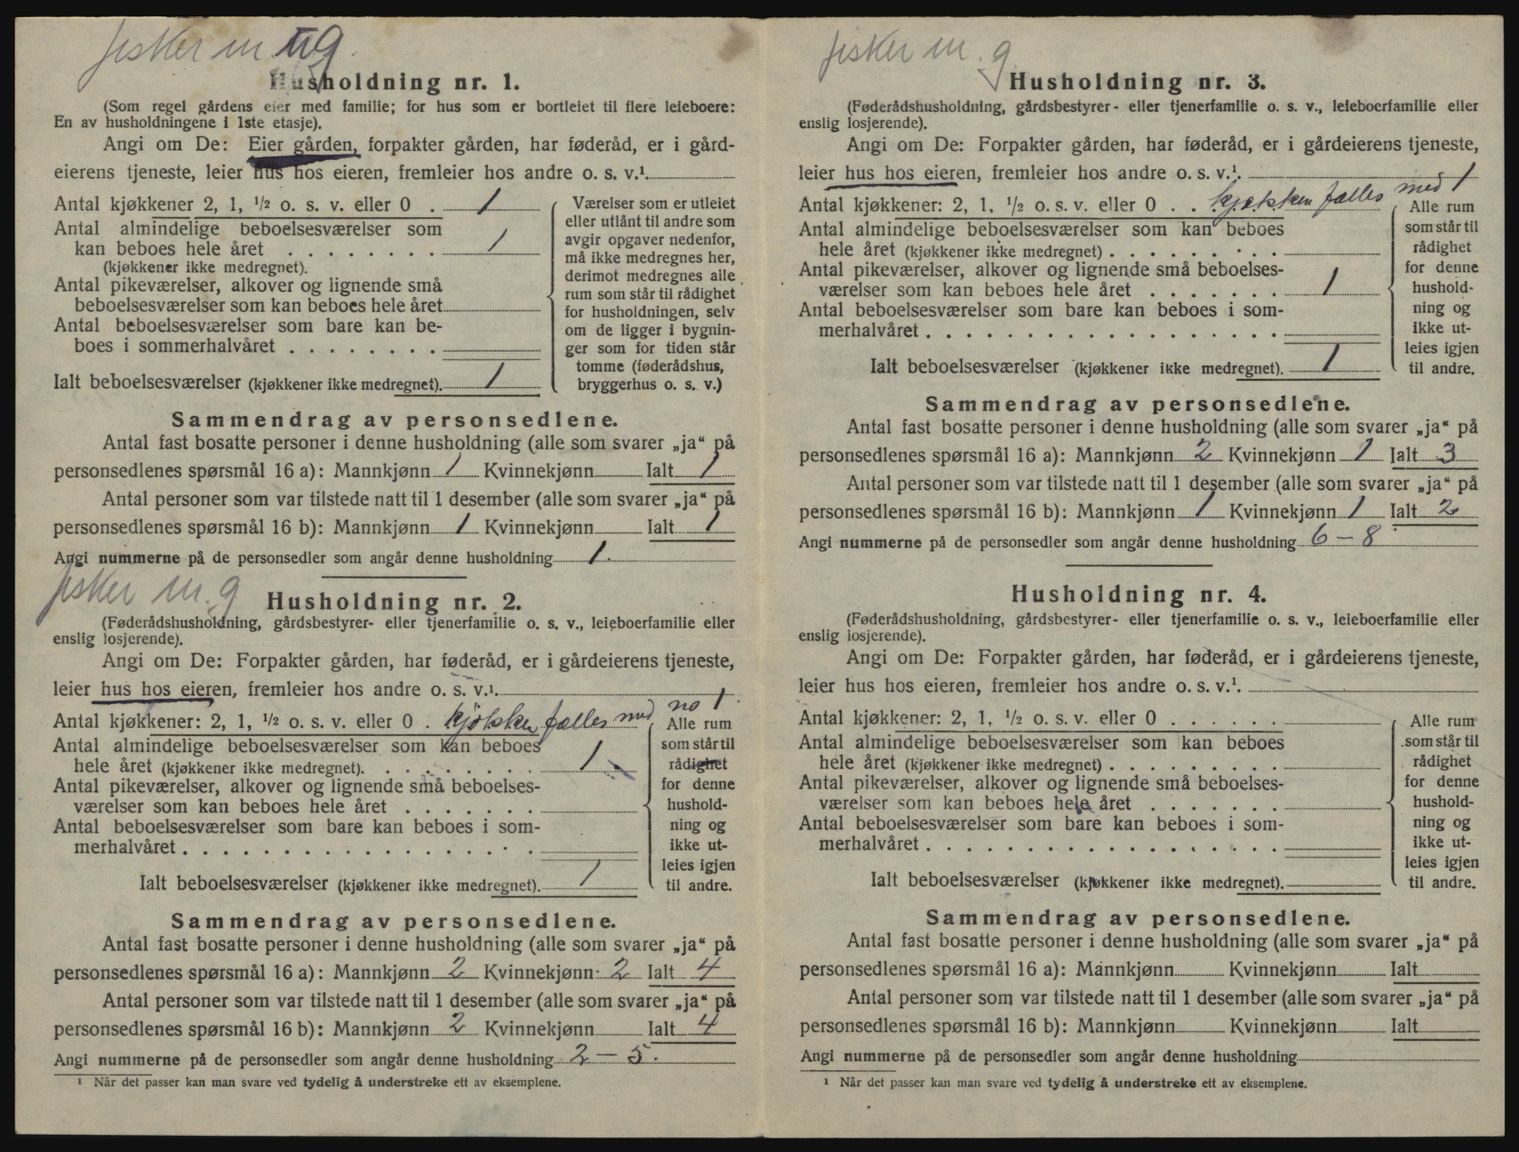 fisker m. g.
Husholdning nr. 1.
(Som regel gårdens eier med familie; for hus som er bortleiet til flere leieboere:
En av husholdningene i 1ste etasje).
Angi om De: Eier gården, forpakter gården, har føderåd, er i gård-
eierens tjeneste, leier hus hos eieren, fremleier hos andre o. s. v.¹.
Antal kjøkkener 2, 1, ½ o. s. v. eller 0 . 1
Antal almindelige beboelsesværelser som
kan beboes hele året . . . . . . . . 1
(kjøkkener ikke medregnet).
Antal pikeværelser, alkover og lignende små
beboelsesværelser som kan beboes hele året
Antal beboelsesværelser som bare kan be-
boes i sommerhalvåret . . . . . . . .
Ialt beboelsesværelser (kjøkkener ikke medregnet). 1
Værelser som er utleiet
eller utlånt til andre som
avgir opgaver nedenfor,
må ikke medregnes her,
derimot medregnes alle
rum som står til rådighet
for husholdningen, selv
om de ligger i bygnin-
ger som for tiden står
tomme (føderådshus,
bryggerhus o. s. v.)
Sammendrag av personsedlene.
Antal fast bosatte personer i denne husholdning (alle som svarer „ja“ på
personsedlenes spørsmål 16 a): Mannkjønn 1 Kvinnekjønn Ialt 1
Antal personer som var tilstede natt til 1 desember (alle som svarer „ja“ på
personsedlenes spørsmål 16 b): Mannkjønn 1 Kvinnekjønn Ialt 1
Angi nummerne på de personsedler som angår denne husholdning 1.
fisker m. g
Husholdning nr. 2.
(Føderådshusholdning, gårdsbestyrer- eller tjenerfamilie o. s. v., leieboerfamilie eller
enslig losjerende).
Angi om De: Forpakter gården, har føderåd, er i gårdeierens tjeneste,
leier hus hos eieren, fremleier hos andre o. s. v.¹.
Antal kjøkkener: 2, 1, ½ o. s. v. eller 0 . kjökken fælles med no 1
Antal almindelige beboelsesværelser som kan beboes
hele året (kjøkkener ikke medregnet). . . . . . . . . 1
Antal pikeværelser, alkover og lignende små beboelses-
værelser som kan beboes hele året . . . . . .
Antal beboelsesværelser som bare kan beboes i som-
merhalvåret . . . . . . . . . . . . . . . . .
Ialt beboelsesværelser (kjøkkener ikke medregnet). 1
Alle rum
som står til
rådighet
for denne
hushold-
ning og
ikke ut-
leies igjen
til andre.
Sammendrag av personsedlene.
Antal fast bosatte personer i denne husholdning (alle som svarer „ja“ på
personsedlenes spørsmål 16 a): Mannkjønn 2 Kvinnekjønn 2 Ialt 4
Antal personer som var tilstede natt til 1 desember (alle som svarer „ja“ på
personsedlenes spørsmål 16 b): Mannkjønn 2 Kvinnekjønn Ialt 4
Angi nummerne på de personsedler som angår denne husholdning 2 – 5.
¹ Når det passer kan man svare ved tydelig å understreke ett av eksemplene.
fisker m. g.
Husholdning nr. 3.
(Føderådshusholdning, gårdsbestyrer- eller tjenerfamilie o. s. v., leieboerfamilie eller
enslig losjerende).
Angi om De: Forpakter gården, har føderåd, er i gårdeierens tjeneste,
leier hus hos eieren, fremleier hos andre o. s. v.¹.
Antal kjøkkener: 2, 1, ½ o. s. v. eller 0 . . kjøkken fælles med 1
Antal almindelige beboelsesværelser som kan beboes
hele året (kjøkkener ikke medregnet) . . . . . . . . .
Antal pikeværelser, alkover og lignende små beboelses-
værelser som kan beboes hele året . . . . . . . 1
Antal beboelsesværelser som bare kan beboes i som-
merhalvåret . . . . . . . . . . . . . . . . .
Ialt beboelsesværelser (kjøkkener ikke medregnet). 1
Alle rum
som står til
rådighet
for denne
hushold-
ning og
ikke ut-
leies igjen
til andre.
Sammendrag av personsedlene.
Antal fast bosatte personer i denne husholdning (alle som svarer „ja“ på
personsedlenes spørsmål 16 a): Mannkjønn 2 Kvinnekjønn 1 Ialt 3
Antal personer som var tilstede natt til 1 desember (alle som svarer „ja“ på
personsedlenes spørsmål 16 b): Mannkjønn 1 Kvinnekjønn 1 Ialt 2
Angi nummerne på de personsedler som angår denne husholdning 6 – 8
Husholdning nr. 4.
(Føderådshusholdning, gårdsbestyrer- eller tjenerfamilie o. s. v., leieboerfamilie eller
enslig losjerende).
Angi om De: Forpakter gården, har føderåd, er i gårdeierens tjeneste,
leier hus hos eieren, fremleier hos andre o. s. v.¹.
Antal kjøkkener: 2, 1, ½ o. s. v. eller 0 . . . . . .
Antal almindelige beboelsesværelser som kan beboes
hele året (kjøkkener ikke medregnet) . . . . . . . . .
Antal pikeværelser, alkover og lignende små beboelses-
værelser som kan beboes hele året . . . . . . .
Antal beboelsesværelser som bare kan beboes i som-
merhalvåret . . . . . . . . . . . . . . . . .
Ialt beboelsesværelser (kjøkkener ikke medregnet).
Alle rum
som står til
rådighet
for denne
hushold-
ning og
ikke ut-
leies igjen
til andre.
Sammendrag av personsedlene.
Antal fast bosatte personer i denne husholdning (alle som svarer „ja“ på
personsedlenes spørsmål 16 a): Mannkjønn Kvinnekjønn Ialt
Antal personer som var tilstede natt til 1 desember (alle som svarer „ja“ på
personsedlenes spørsmål 16 b): Mannkjønn Kvinnekjønn Ialt
Angi nummerne på de personsedler som angår denne husholdning
¹ Når det passer kan man svare ved tydelig å understreke ett av eksemplene.